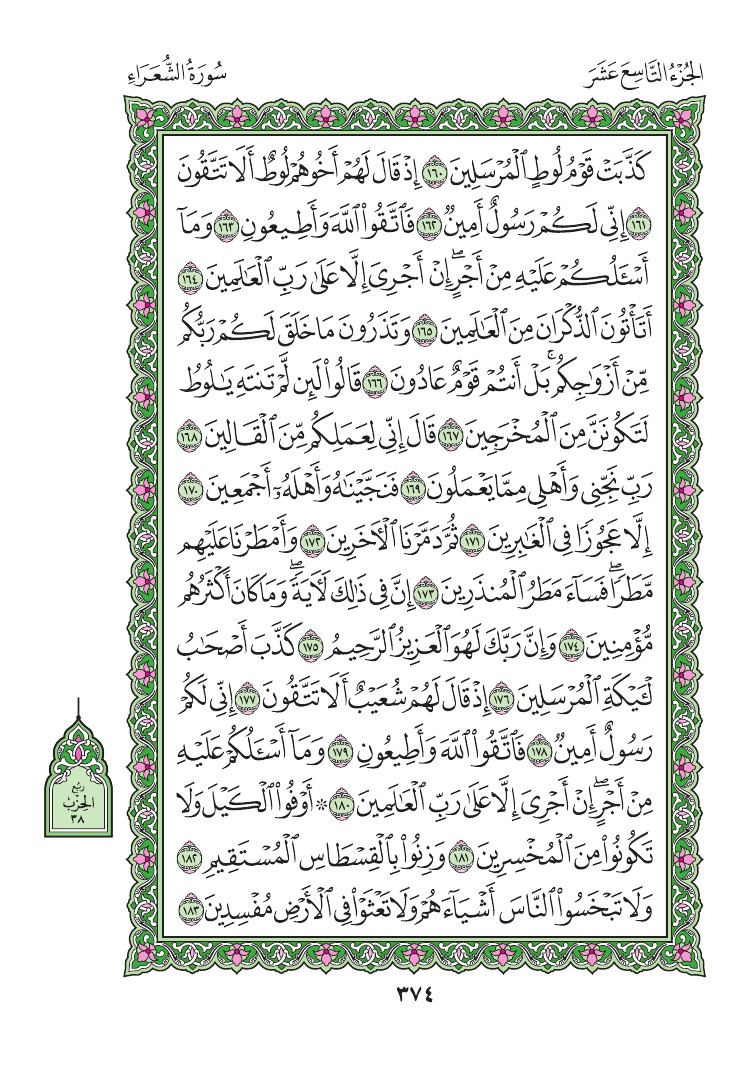 الجُزْءُ التَّاسِعَ عَشَرَ
سُورَةُ الشُّعَرَاءِ
كَذَّبَتْ قَوْمُ لُوطٍ ٱلْمُرْسَلِينَ ١٦٠ إِذْ قَالَ لَهُمْ أَخُوهُمْ لُوطٌ أَلَا تَتَّقُونَ
١٦١ إِنِّى لَكُمْ رَسُولٌ أَمِينٌ ١٦٢ فَٱتَّقُوا۟ ٱللَّهَ وَأَطِيعُونِ ١٦٣ وَمَآ
أَسْـَٔلُكُمْ عَلَيْهِ مِنْ أَجْرٍ ۖ إِنْ أَجْرِىَ إِلَّا عَلَىٰ رَبِّ ٱلْعَـٰلَمِينَ ١٦٤
أَتَأْتُونَ ٱلذُّكْرَانَ مِنَ ٱلْعَـٰلَمِينَ ١٦٥ وَتَذَرُونَ مَا خَلَقَ لَكُمْ رَبُّكُم
مِّنْ أَزْوَٰجِكُم ۚ بَلْ أَنتُمْ قَوْمٌ عَادُونَ ١٦٦ قَالُوا۟ لَئِن لَّمْ تَنتَهِ يَـٰلُوطُ
لَتَكُونَنَّ مِنَ ٱلْمُخْرَجِينَ ١٦٧ قَالَ إِنِّى لِعَمَلِكُم مِّنَ ٱلْقَالِينَ ١٦٨
رَبِّ نَجِّنِى وَأَهْلِى مِمَّا يَعْمَلُونَ ١٦٩ فَنَجَّيْنَـٰهُ وَأَهْلَهُۥٓ أَجْمَعِينَ ١٧٠
إِلَّا عَجُوزًا فِى ٱلْغَـٰبِرِينَ ١٧١ ثُمَّ دَمَّرْنَا ٱلْـَٔاخَرِينَ ١٧٢ وَأَمْطَرْنَا عَلَيْهِم
مَّطَرًا ۖ فَسَآءَ مَطَرُ ٱلْمُنذَرِينَ ١٧٣ إِنَّ فِى ذَٰلِكَ لَـَٔايَةً ۖ وَمَا كَانَ أَكْثَرُهُم
مُّؤْمِنِينَ ١٧٤ وَإِنَّ رَبَّكَ لَهُوَ ٱلْعَزِيزُ ٱلرَّحِيمُ ١٧٥ كَذَّبَ أَصْحَـٰبُ
لْـَٔيْكَةِ ٱلْمُرْسَلِينَ ١٧٦ إِذْ قَالَ لَهُمْ شُعَيْبٌ أَلَا تَتَّقُونَ ١٧٧ إِنِّى لَكُمْ
رَسُولٌ أَمِينٌ ١٧٨ فَٱتَّقُوا۟ ٱللَّهَ وَأَطِيعُونِ ١٧٩ وَمَآ أَسْـَٔلُكُمْ عَلَيْهِ
مِنْ أَجْرٍ ۖ إِنْ أَجْرِىَ إِلَّا عَلَىٰ رَبِّ ٱلْعَـٰلَمِينَ ١٨٠ ۞ أَوْفُوا۟ ٱلْكَيْلَ وَلَا
تَكُونُوا۟ مِنَ ٱلْمُخْسِرِينَ ١٨١ وَزِنُوا۟ بِٱلْقِسْطَاسِ ٱلْمُسْتَقِيمِ ١٨٢
وَلَا تَبْخَسُوا۟ ٱلنَّاسَ أَشْيَآءَهُمْ وَلَا تَعْثَوْا۟ فِى ٱلْأَرْضِ مُفْسِدِينَ ١٨٣
رُبْع
الحِزْب
٣٨
٣٧٤